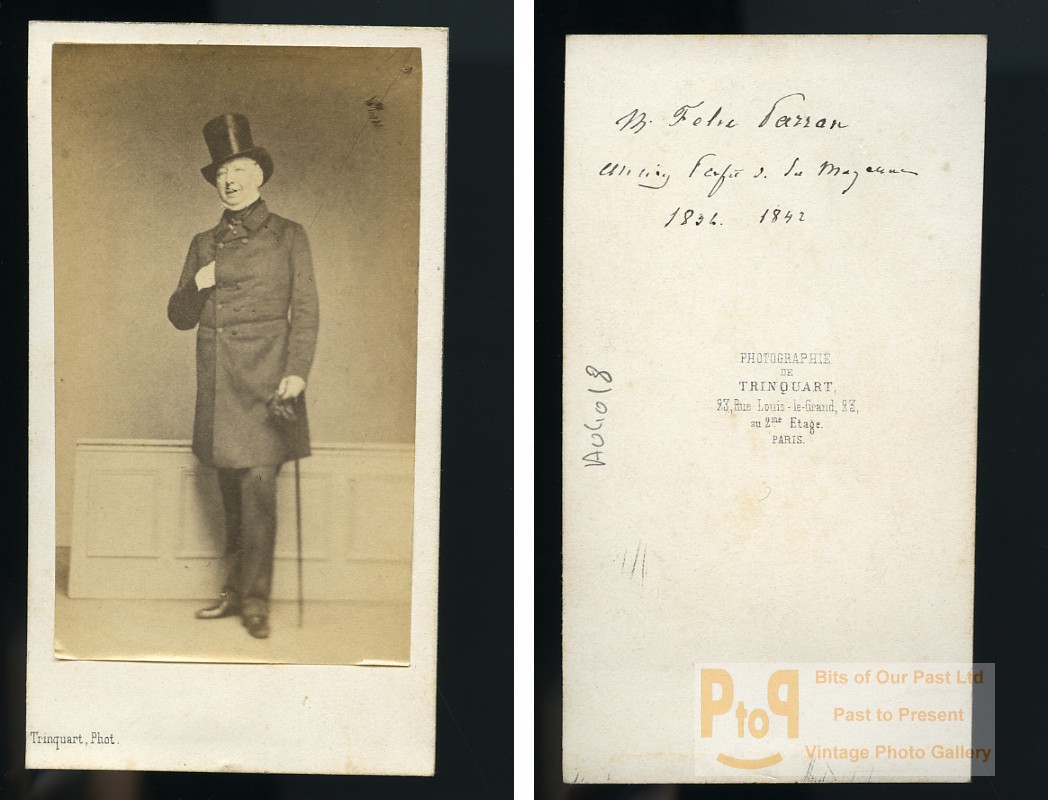 Trinquart, Phot.
M. Felix Parran
ancien Préfet d. la Mayenne
1842
PHOTOGRAPHIE
DE
TRINQUART,
23, Rue Louis-le-Grand, 23,
au 2me Etage.
PARIS.
PtoP
Bits of Our Past Ltd
Past to Present
Vintage Photo Gallery